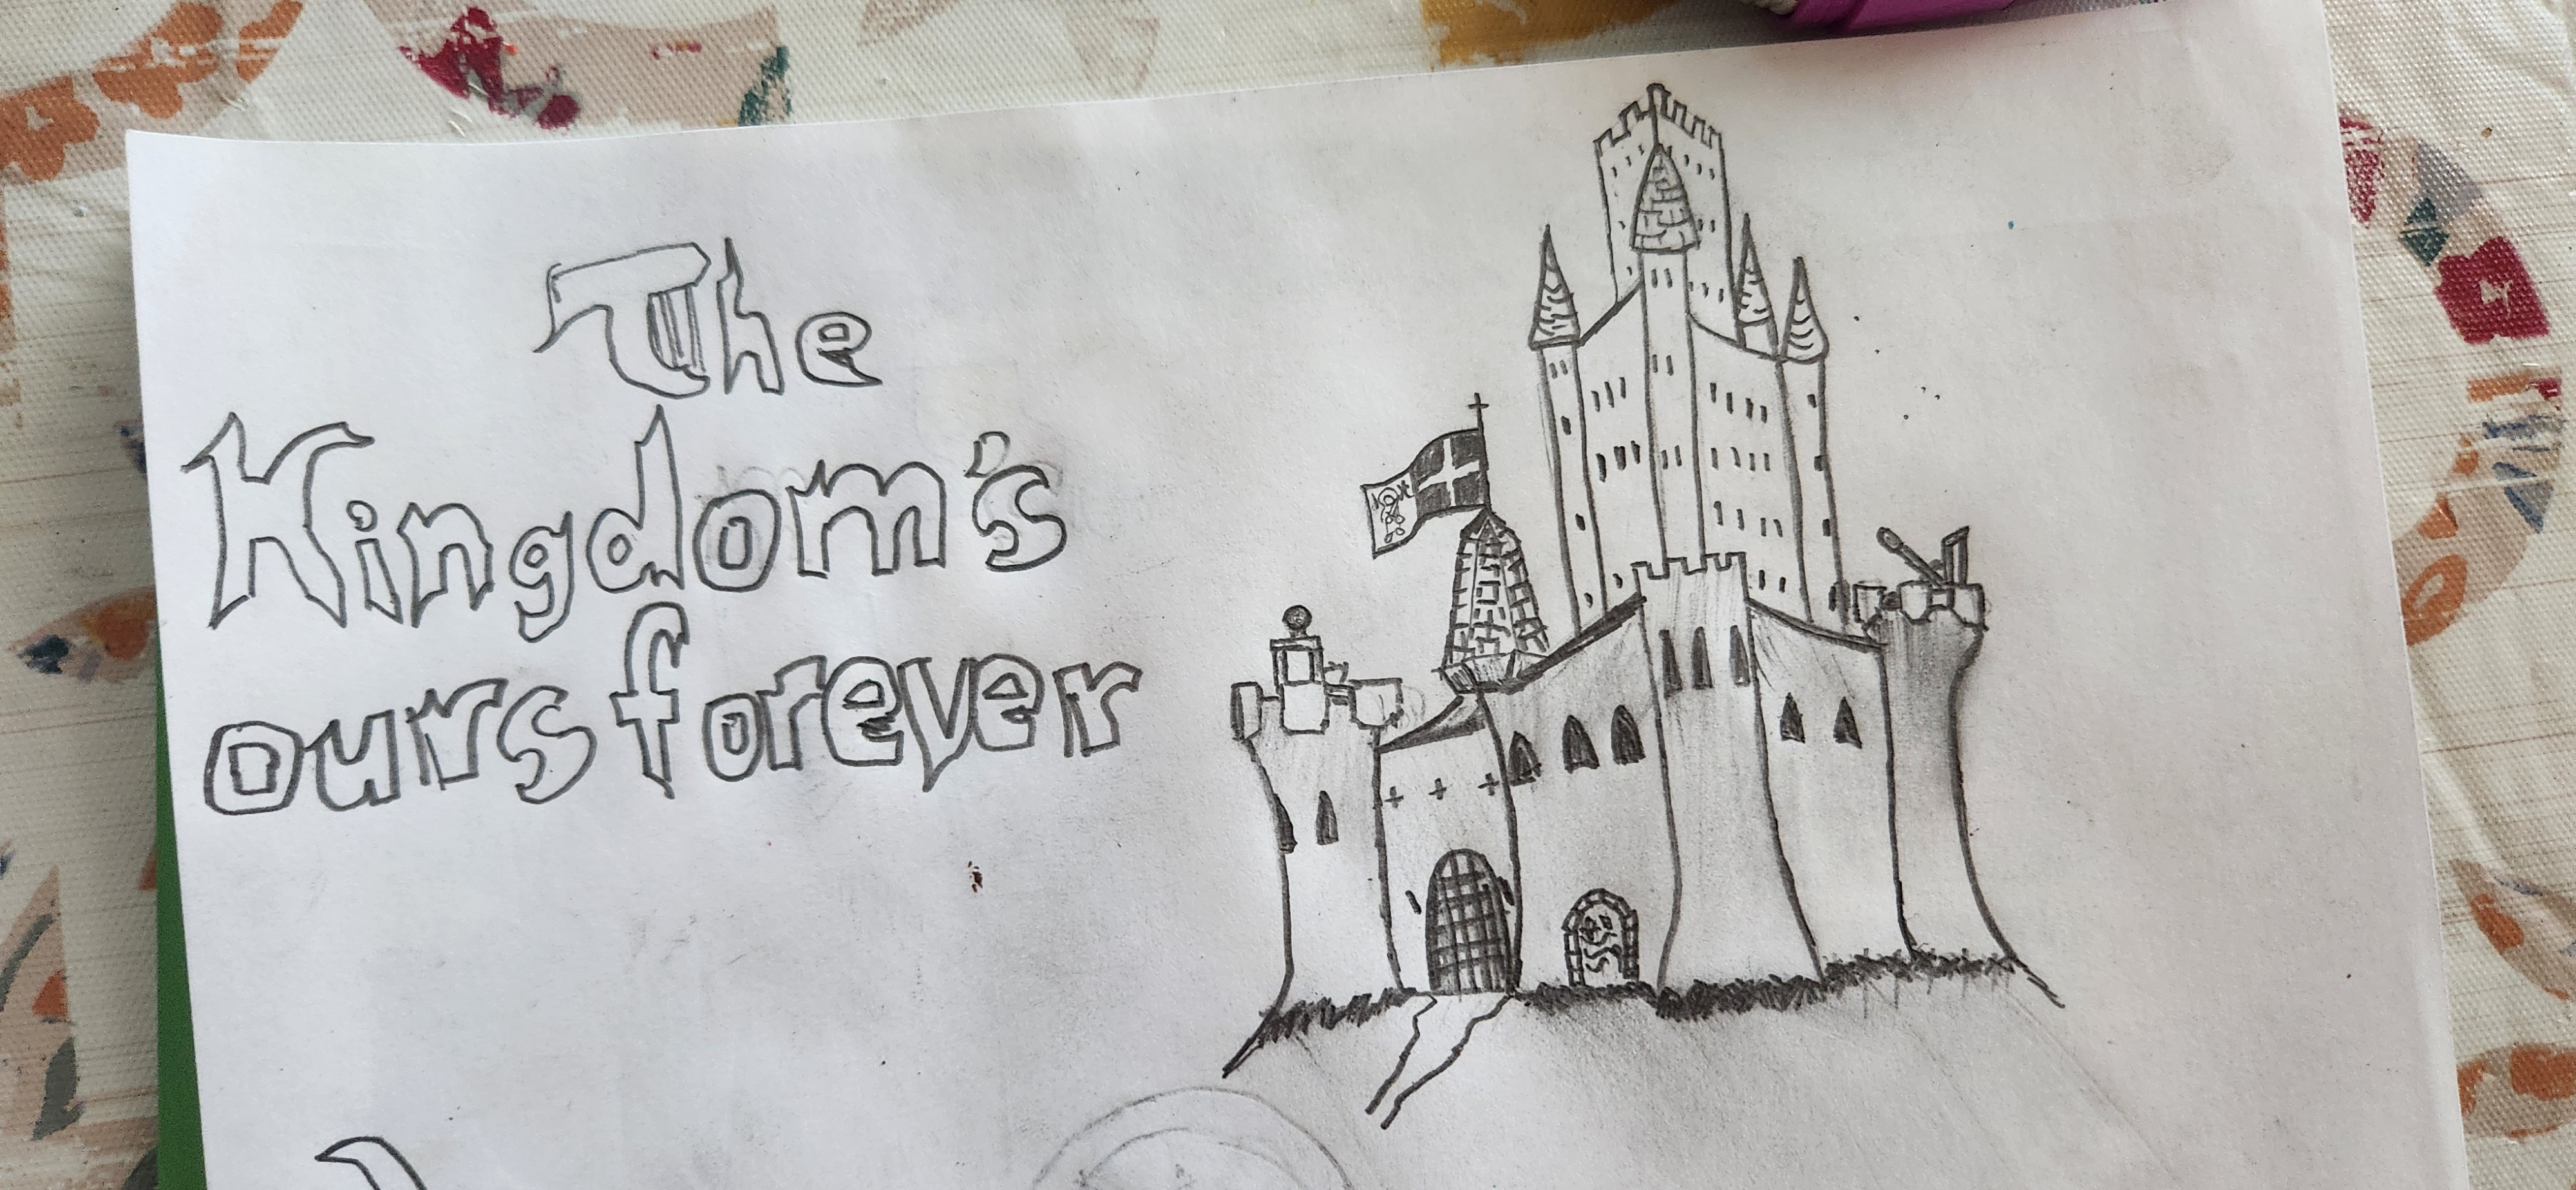 The
Kingdom's
ours forever